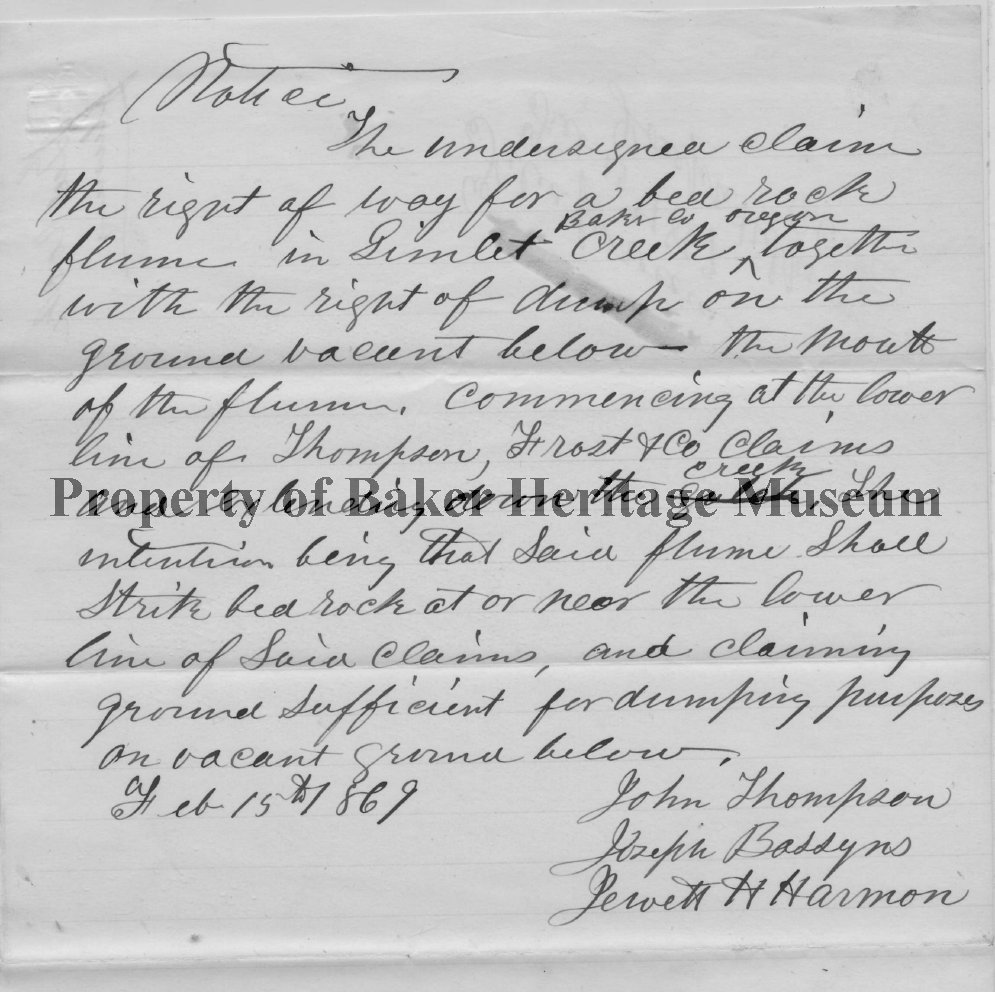 Notice
The undersigned claim
the right of way for a bed rock
Baker Co oregon
flume in Gimlet Creek, together
with the right of dump on the
ground vacant below the mouth
of the flume. Commencing at the lower
line of Thompson, Frost & Co Claims
creek
and extending down the The
Property of Baker Heritage Museum
intention being that Said flume Shall
Strike bed rock at or near the lower
line of Said Claims, and claiming
ground Sufficient for dumping purposes
on vacant ground below.
Feb 15th 1869
John Thompson
Joseph
Jewett H Harmon